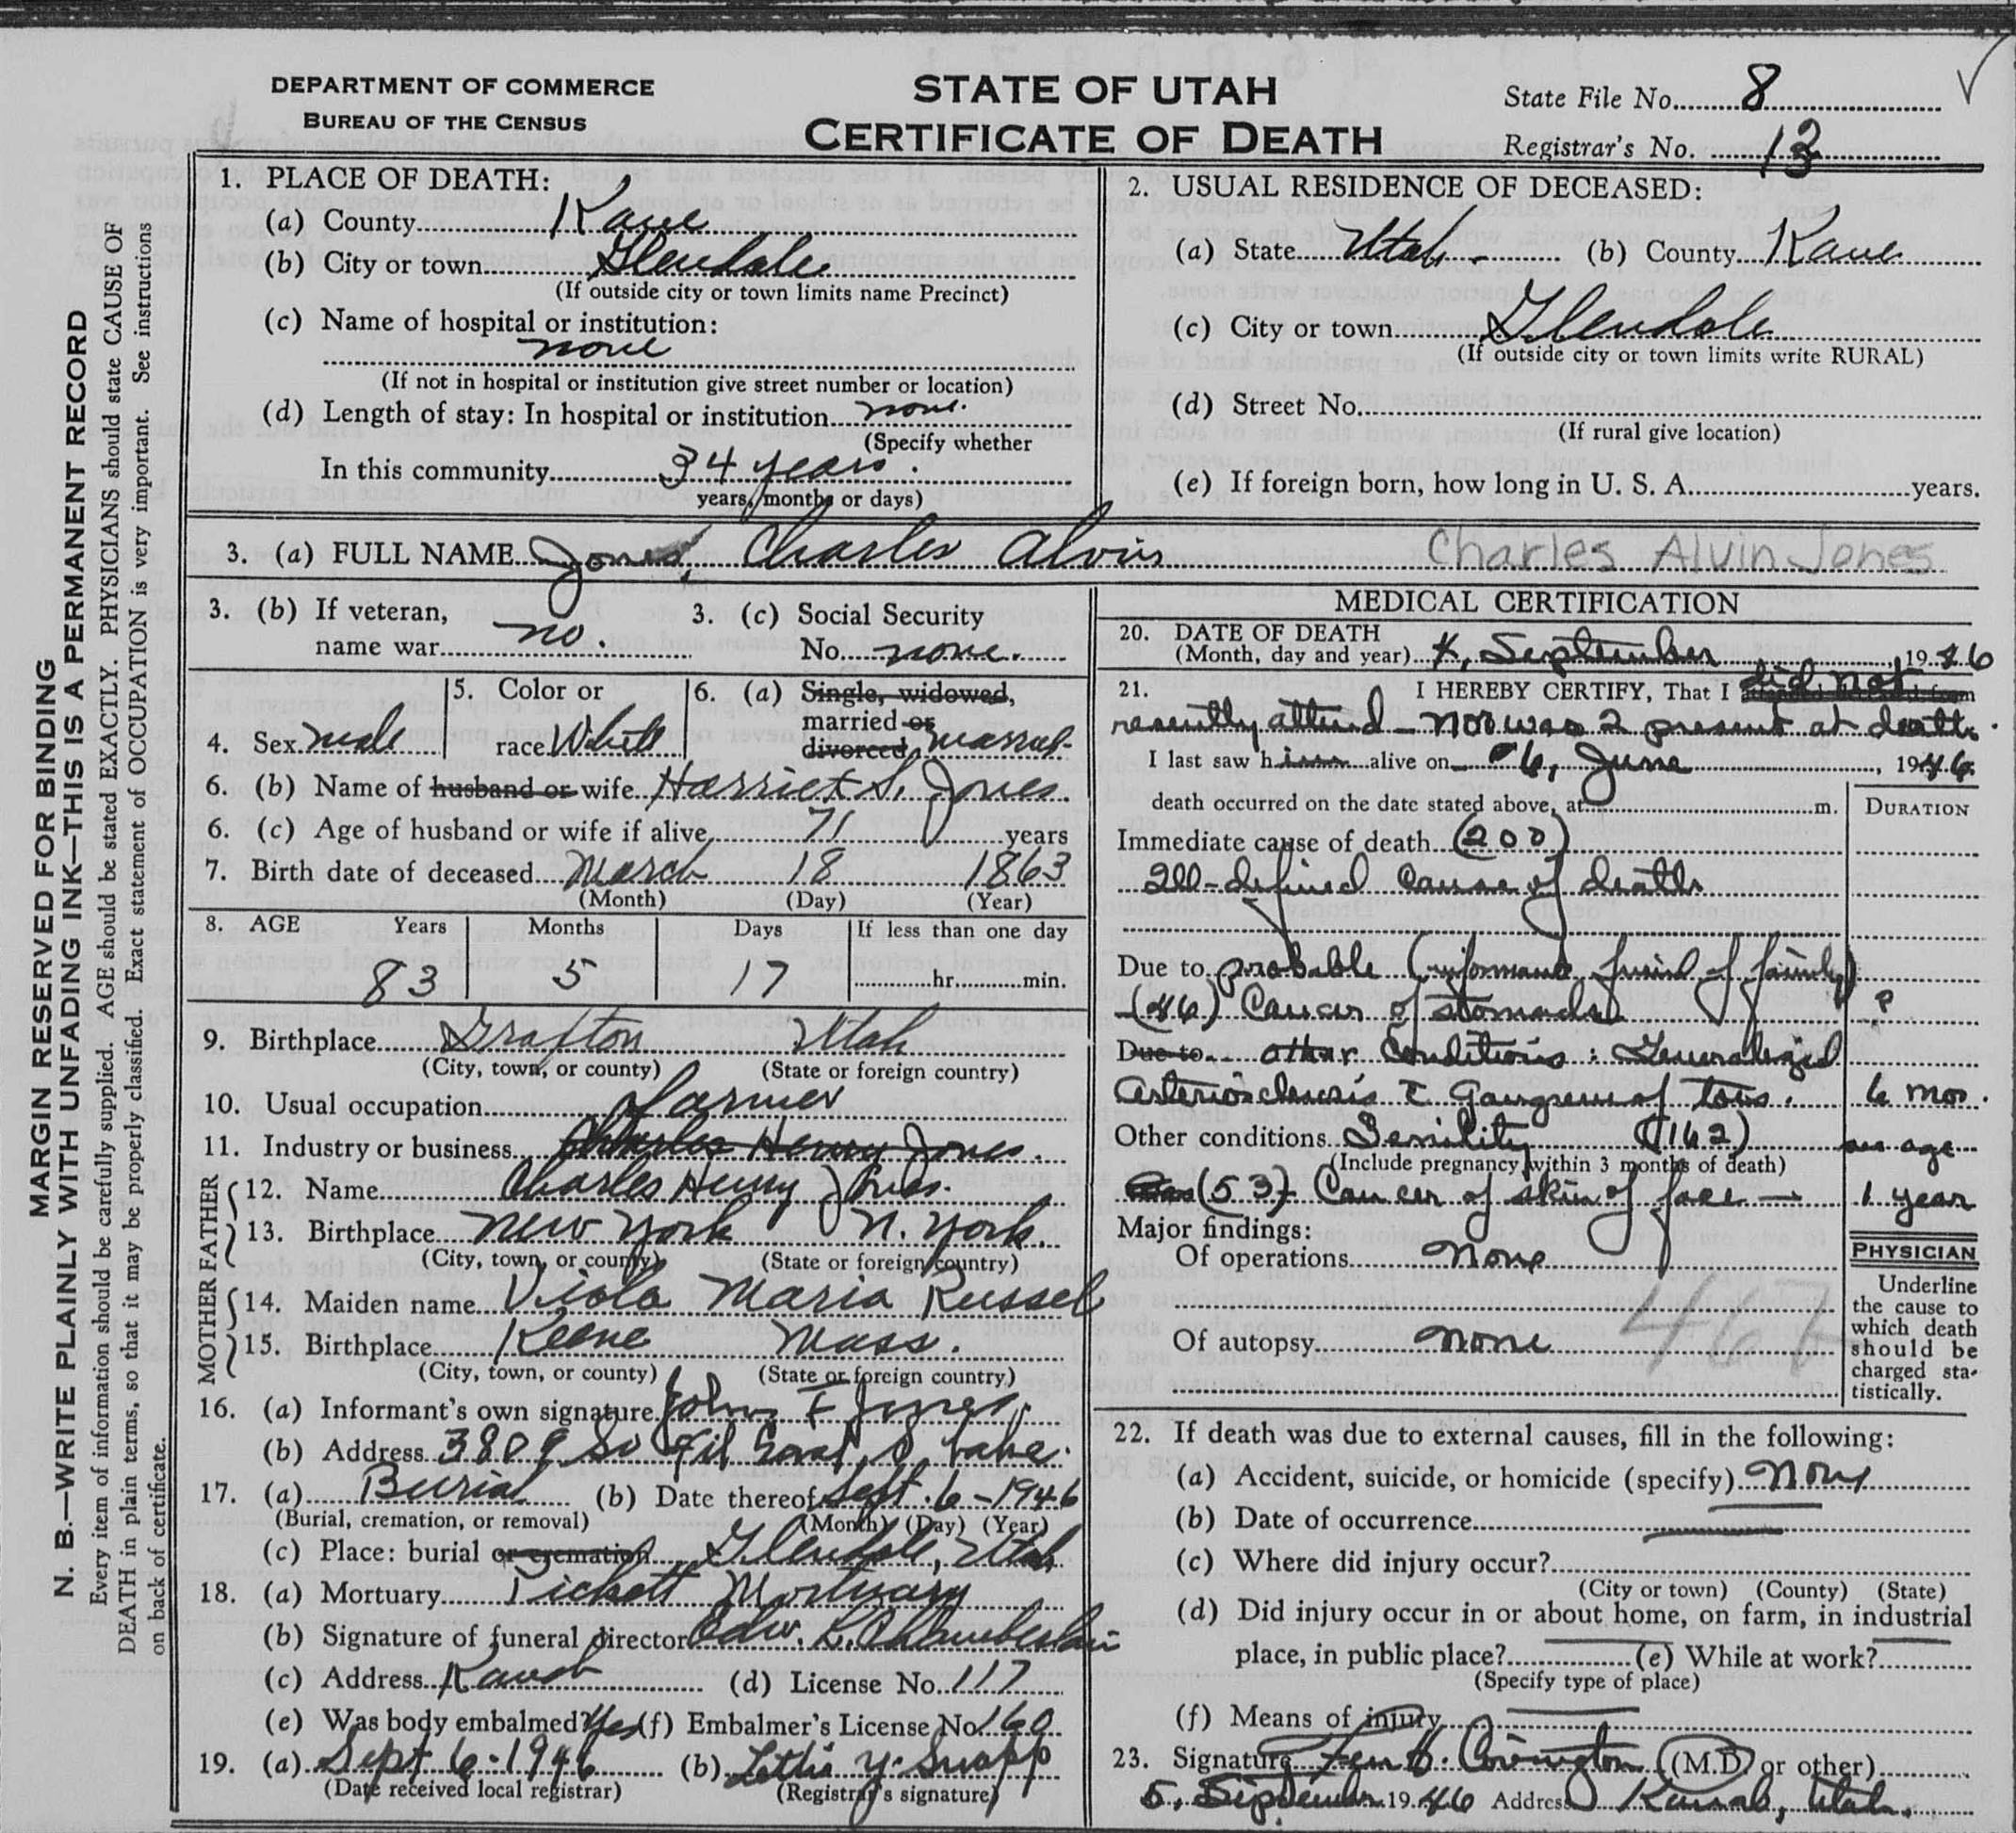 DEPARTMENT OF COMMERCE
BUREAU OF THE CENSUS
STATE OF UTAH
CERTIFICATE OF DEATH
State File No. 8
Registrar's No. 13
MARGIN RESERVED FOR BINDING
N. B.—WRITE PLAINLY WITH UNFADING INK—THIS IS A PERMANENT RECORD
Every item of information should be carefully supplied. AGE should be stated EXACTLY. PHYSICIANS should state CAUSE OF
DEATH in plain terms, so that it may be properly classified. Exact statement of OCCUPATION is very important. See instructions
on back of certificate.
1. PLACE OF DEATH:
(a) County Kane
(b) City or town Glendale
(If outside city or town limits name Precinct)
(c) Name of hospital or institution:
none
(If not in hospital or institution give street number or location)
(d) Length of stay: In hospital or institution none.
(Specify whether
In this community 34 years.
years, months or days)
2. USUAL RESIDENCE OF DECEASED:
(a) State Utah - (b) County Kane
(c) City or town Glendale
(If outside city or town limits write RURAL)
(d) Street No.
(If rural give location)
(e) If foreign born, how long in U. S. A. years.
3. (a) FULL NAME Jones, Charles Alvin Charles Alvin Jones
3. (b) If veteran,
name war no.
3. (c) Social Security
No. none.
4. Sex Male
5. Color or
race White
6. (a) Single, widowed,
married or
divorced, married
6. (b) Name of husband or wife Harriet S. Jones.
6. (c) Age of husband or wife if alive 71 years
7. Birth date of deceased March 18 1863
(Month) (Day) (Year)
8. AGE Years Months Days If less than one day
83 5 17 hr. min.
9. Birthplace Grafton Utah
(City, town, or county) (State or foreign country)
10. Usual occupation farmer
11. Industry or business Charles Henry Jones.
FATHER
12. Name Charles Henry Jones.
13. Birthplace New York N. York.
(City, town, or county) (State or foreign country)
MOTHER
14. Maiden name Viola Maria Russel
15. Birthplace Keene Mass.
(City, town, or county) (State or foreign country)
16. (a) Informant's own signature John F Jones
(b) Address 3809 So
17. (a) Burial (b) Date thereof Sept. 6-1946
(Burial, cremation, or removal) (Month) (Day) (Year)
(c) Place: burial or cremation Glendale, Utah
18. (a) Mortuary Pickett Mortuary
(b) Signature of funeral director Edw. K. Chamberlain
(c) Address Kanab (d) License No. 117
(e) Was body embalmed? Yes (f) Embalmer's License No. 160
19. (a) Sept 6-1946 (b) Y. Swapp
(Date received local registrar) (Registrar's signature)
MEDICAL CERTIFICATION
20. DATE OF DEATH
(Month, day and year) 4, September, 1946
21. I HEREBY CERTIFY, That I did not
recently attend - nor was I present at death.
I last saw him alive on 6, June, 1946
death occurred on the date stated above, at m. DURATION
Immediate cause of death (200)
Ill-defined cause of death
Due to probable (informant friend of family)
(46) Cancer of stomach ?
Due to other conditions: Generalized
arteriosclerosis c Gangrene of toes. 6 mos.
Other conditions Senility (162) age
(Include pregnancy within 3 months of death)
(53) Cancer of skin of face — 1 year
Major findings:
Of operations none
Of autopsy none
467
PHYSICIAN
Underline
the cause to
which death
should be
charged sta-
tistically.
22. If death was due to external causes, fill in the following:
(a) Accident, suicide, or homicide (specify) None
(b) Date of occurrence
(c) Where did injury occur?
(City or town) (County) (State)
(d) Did injury occur in or about home, on farm, in industrial
place, in public place? (e) While at work?
(Specify type of place)
(f) Means of injury
23. Signature Covington (M.D. or other)
5, September 1946 Address Kanab, Utah.